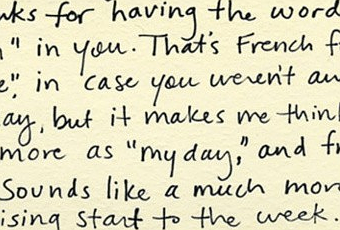 nks for having the word
" in you. That's French f
e", in case you weren't aw
ay, but it makes me think
more as "my day," and fr
Sounds like a much mor
ising start to the week.